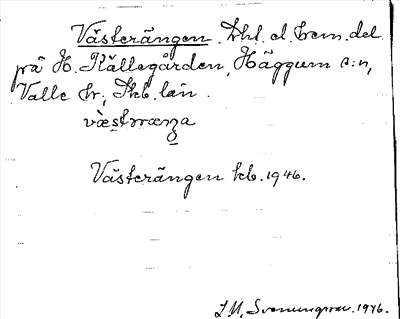 Västerängen. Lht. el. hem. del
på H. Källegården, Häggum s:n,
Valle hr, Skb. län.
væstræŋa
Västerängen kb. 1946.
J. M. Svenungsson. 1946.